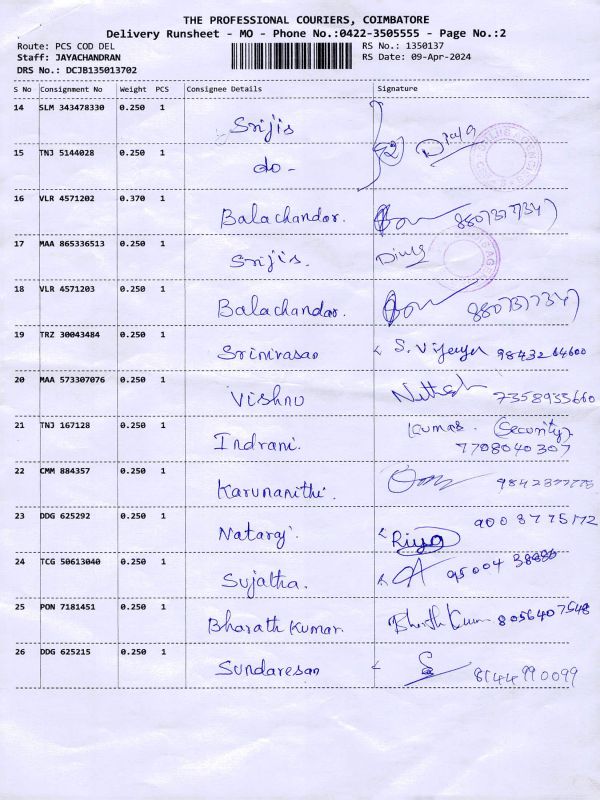 THE PROFESSIONAL COURIERS, COIMBATORE
Delivery Runsheet - MO - Phone No.:0422-3505555 - Page No.:2
Route: PCS COD DEL RS No.: 1350137
Staff: JAYACHANDRAN RS Date: 09-Apr-2024
DRS No.: DCJB135013702
S No Consignment No Weight PCS Consignee Details Signature
14 SLM 343478330 0.250 1 Srijis
15 TNJ 5144028 0.250 1 do-
16 VLR 4571202 0.370 1 Balachandar.
17 MAA 865336513 0.250 1 Srijis.
18 VLR 4571203 0.250 1 Balachandar.
19 TRZ 30043484 0.250 1 Srinivasan 9843264600
20 MAA 573307076 0.250 1 Vishnu 7358933660
21 TNJ 167128 0.250 1 Indrani. Kumar. (Security) 7708040307
22 CMM 884357 0.250 1 Karunanithi.
23 DDG 625292 0.250 1 Nataraj. Riya 9008775172
24 TCG 50613040 0.250 1 Sujatha.
25 PON 7181451 0.250 1 Bharath Kumar. 8056407548
26 DDG 625215 0.250 1 Sundaresan 8144990099